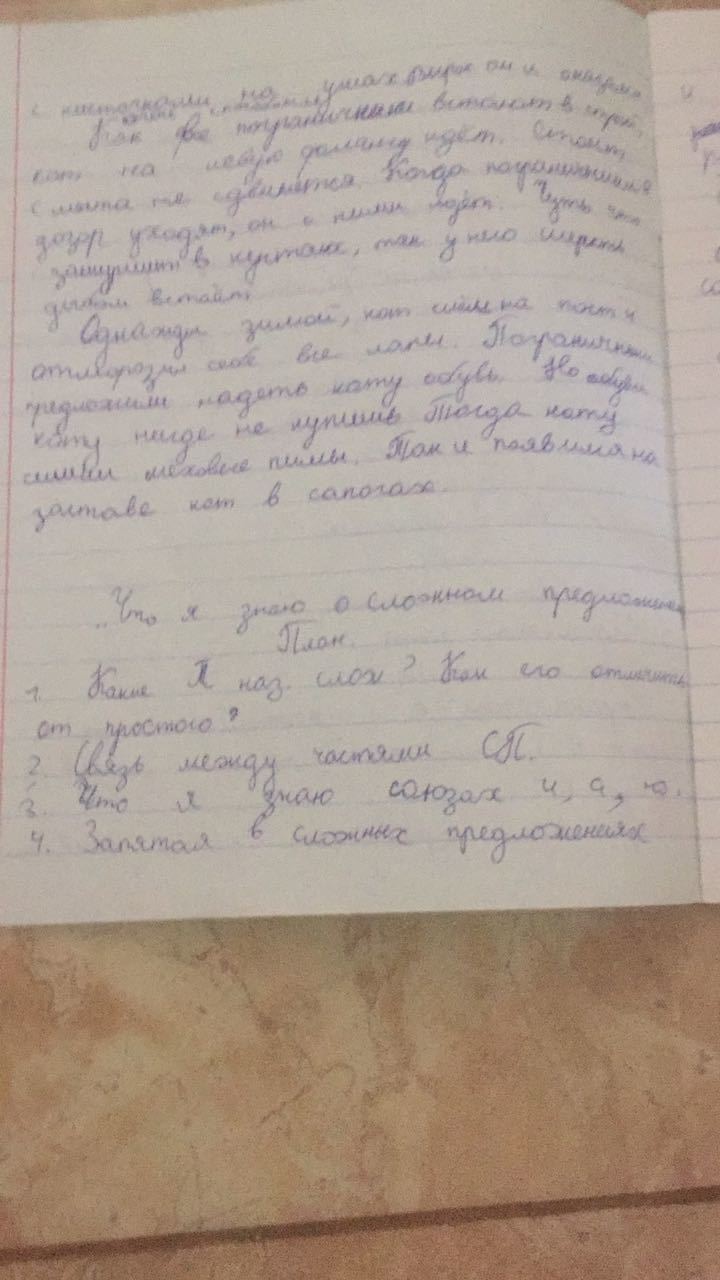 с кисточками на ушах. он и
Как все пограничники встанут в строй,
кот на левую фланку идёт. Стоит,
с места не сдвинется. Когда пограничники в
дозор уходят, он с ними идёт. Чуть что
зашуршит в кустах, так у него шерсть
дыбом встаёт.
Однажды зимой, кот шёл на пост и
отморозил себе все лапы. Пограничники
предложили надеть коту обувь. Но обуви
коту нигде не купишь. Тогда коту
сшили меховые пимы. Так и появился на
заставе кот в сапогах.
„Что я знаю о сложном предложении
План.
1. Какие П наз. слож? Как его отличить
от простого?
2. Связь между частями СП.
3. Что я знаю союзах и, а, но.
4. Запятая в сложных предложениях